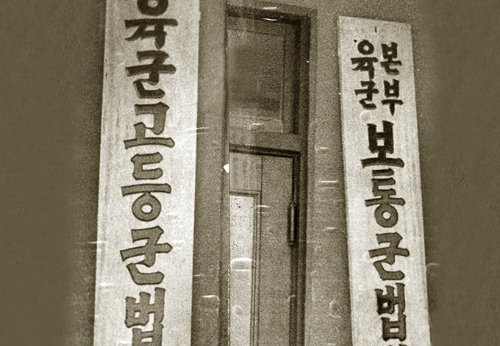 육군고등군법
육군
본부
보통군법